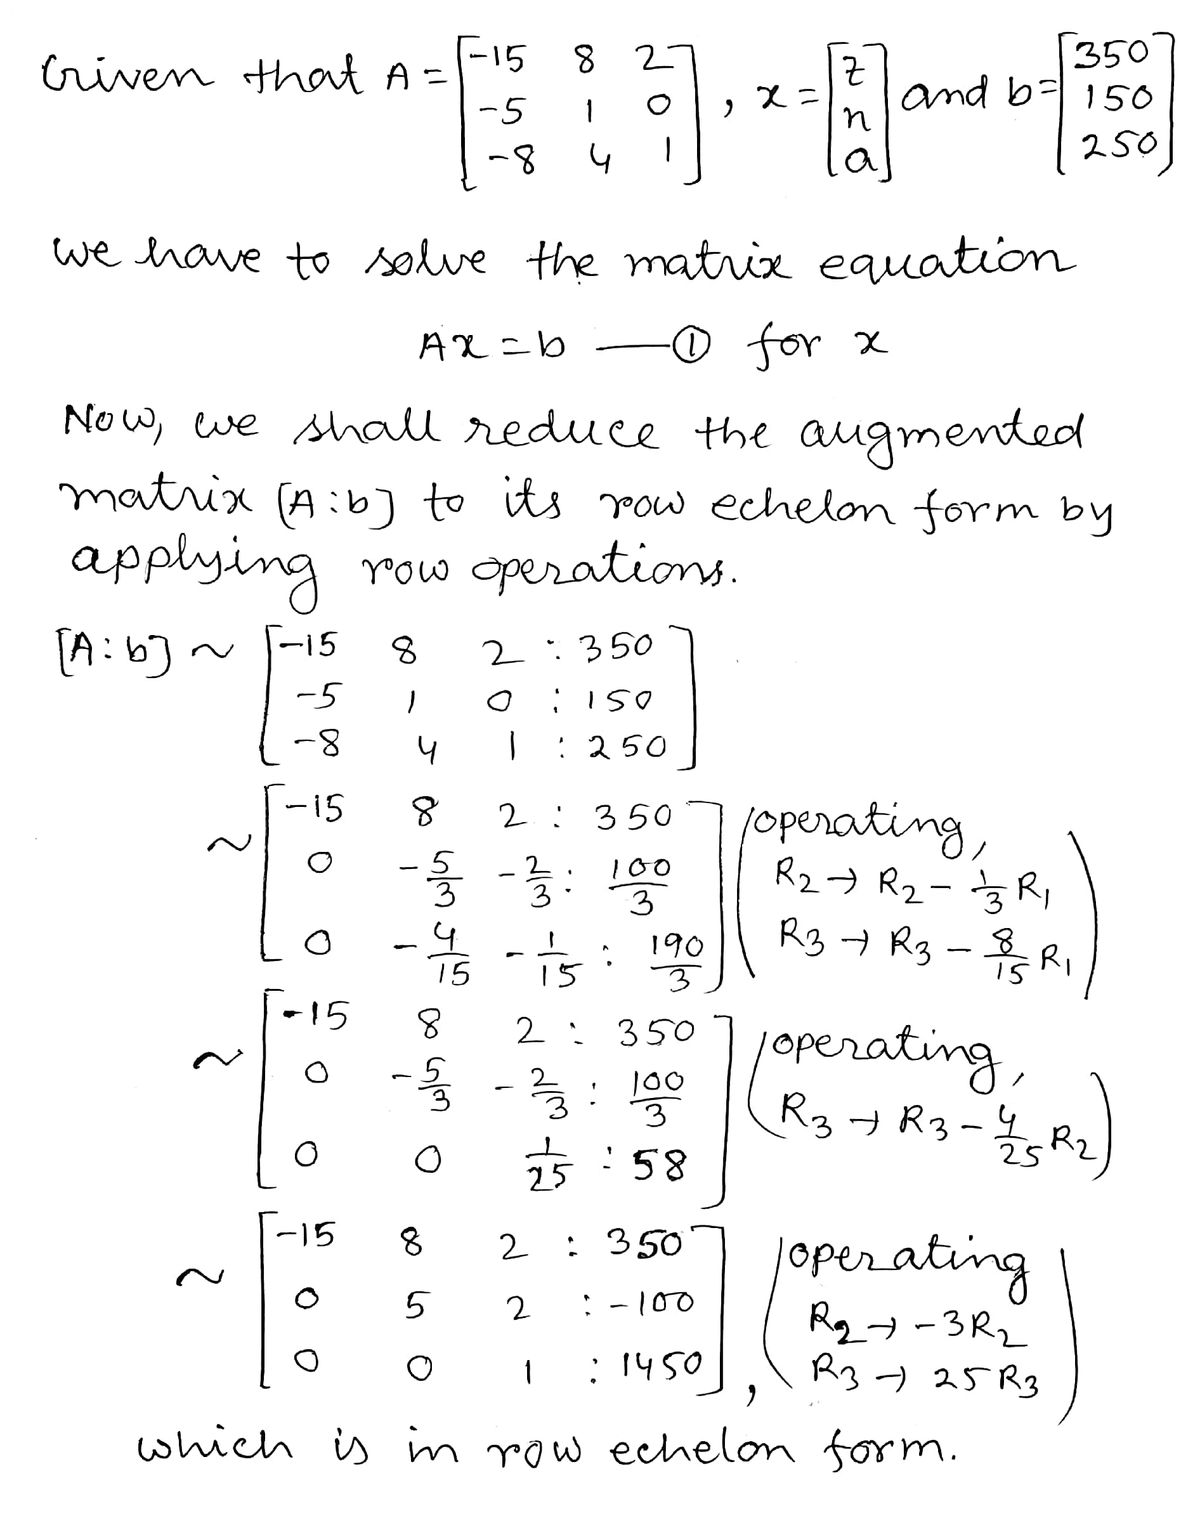 Given that A = [-15 8 2; -5 1 0; -8 4 1], x = [z; n; a] and b = [350; 150; 250]
we have to solve the matrix equation
Ax = b —① for x
Now, we shall reduce the augmented
matrix [A:b] to its row echelon form by
applying row operations.
[A:b] ~ [-15 8 2 : 350
-5 1 0 : 150
-8 4 1 : 250]
~ [-15 8 2 : 350
0 -5/3 -2/3 : 100/3
0 -4/15 -1/15 : 190/3]
(operating,
R2 → R2 - 1/3 R1
R3 → R3 - 8/15 R1)
~ [-15 8 2 : 350
0 -5/3 -2/3 : 100/3
0 0 1/25 : 58]
(operating,
R3 → R3 - 4/25 R2)
~ [-15 8 2 : 350
0 5 2 : -100
0 0 1 : 1450],
(operating
R2 → -3R2
R3 → 25R3)
which is in row echelon form.